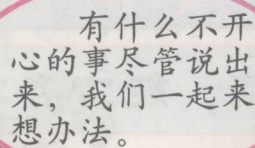 有什么不开
心的事尽管说出
来，我们一起来
想办法。